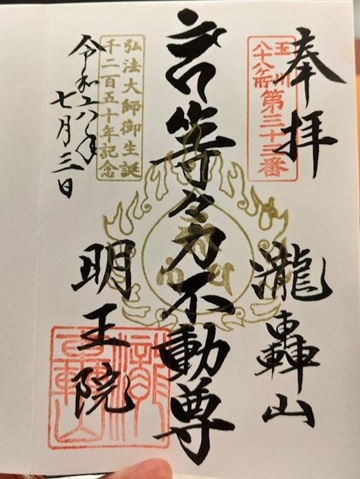 奉拝
玉川
八十八ヶ所
第三十三番
瀧轟山
等々力不動尊
弘法大師御生誕
千二百五十年記念
令和六年
七月三日
明王院
瀧轟山